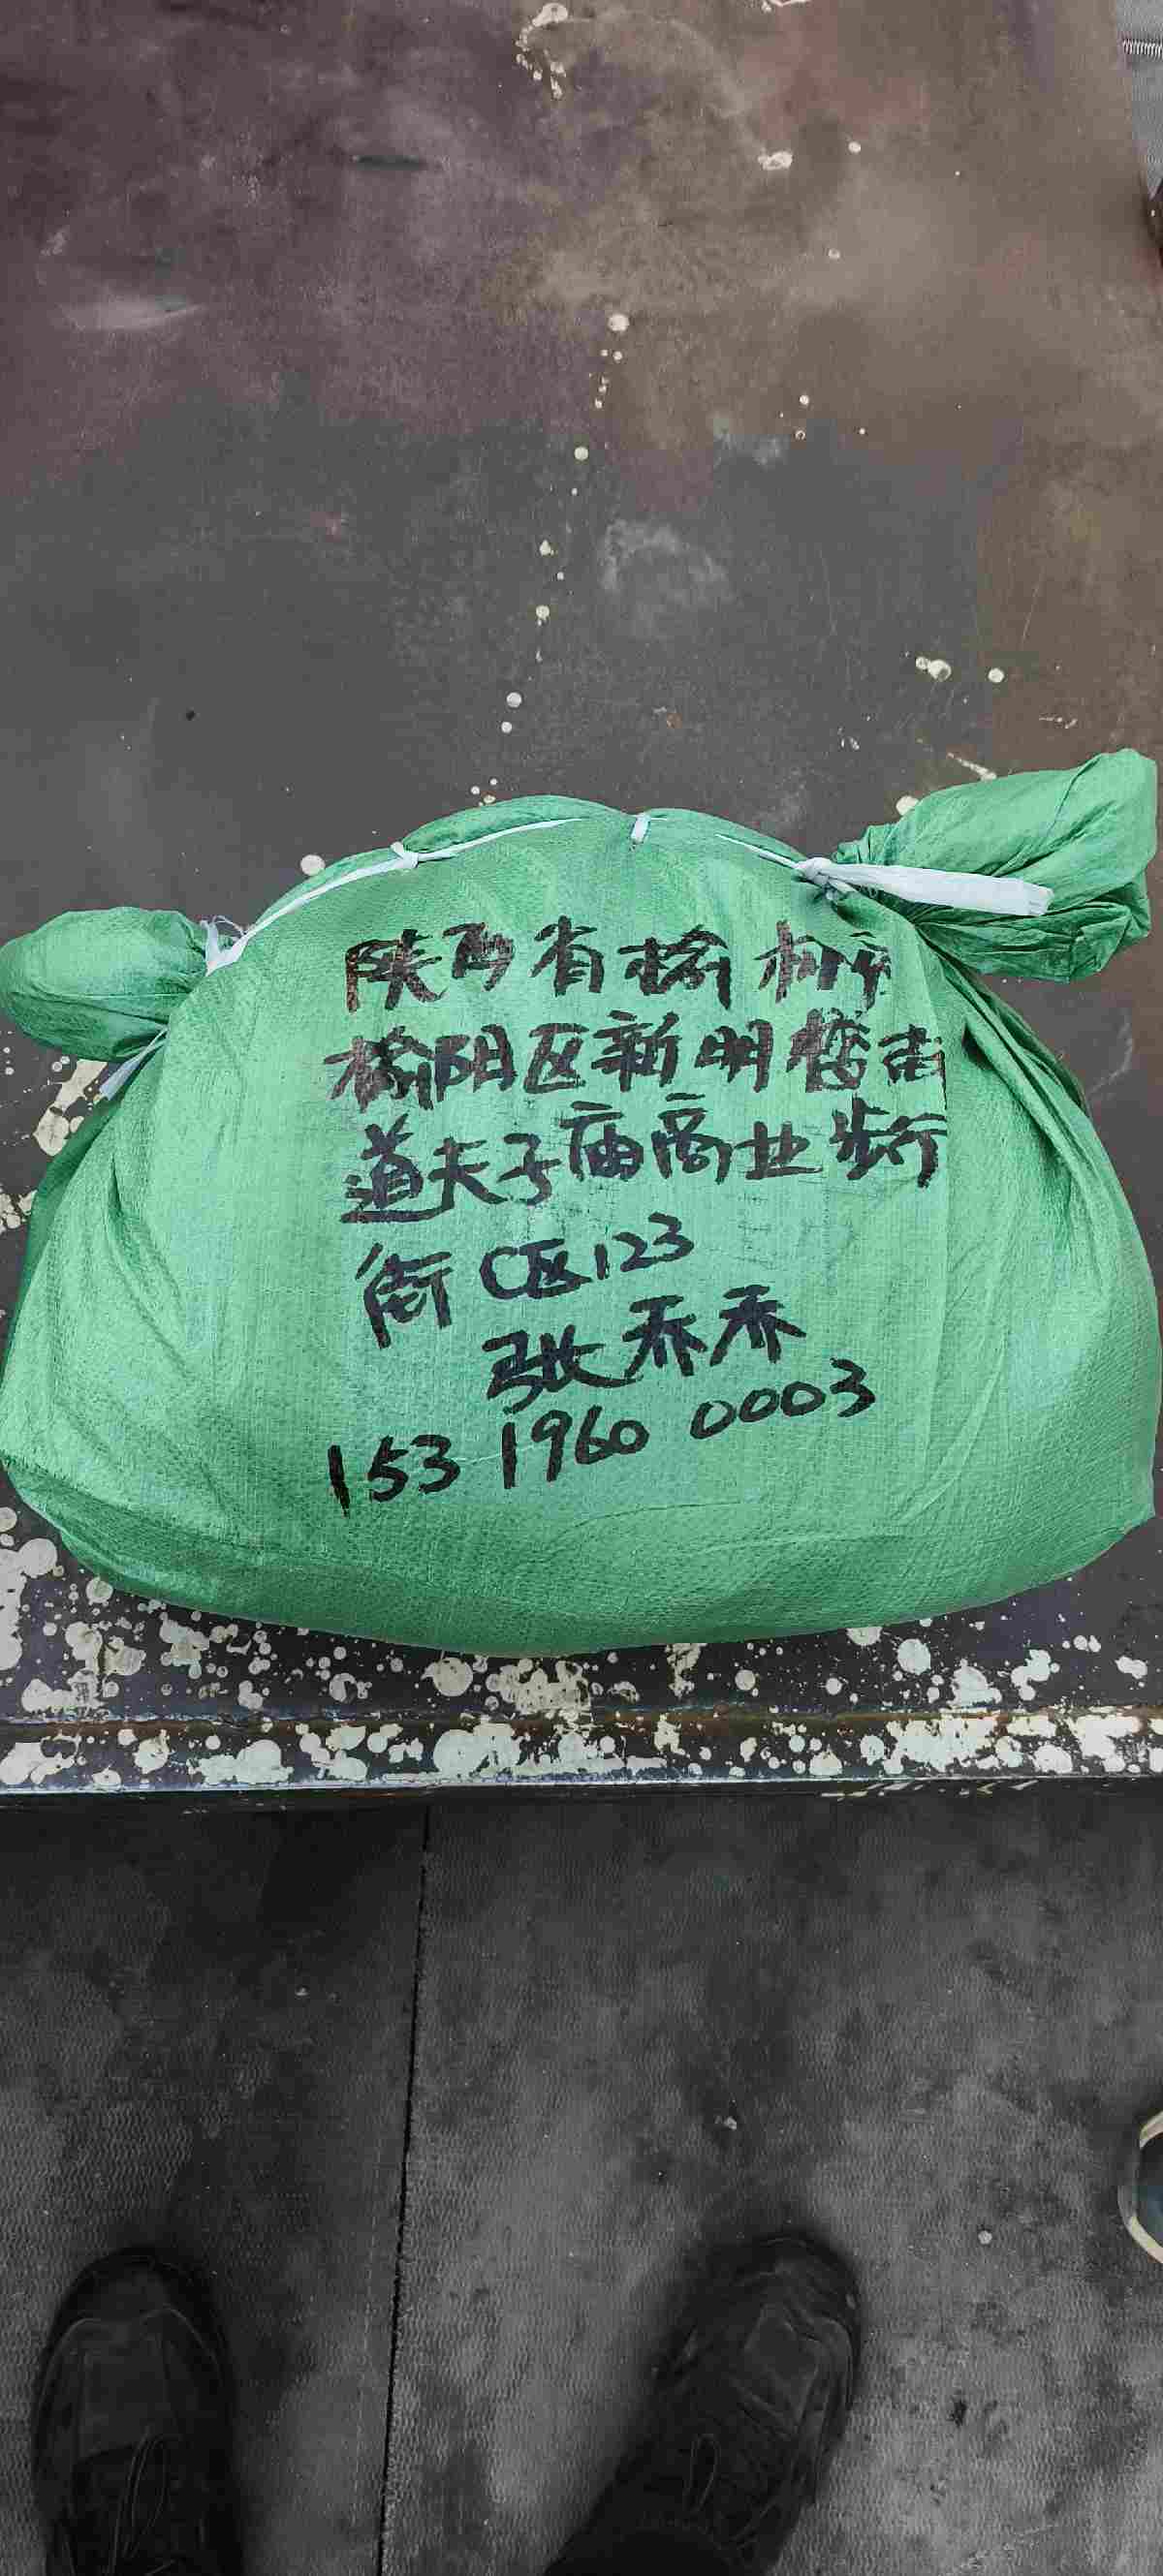 陕西省榆林市
榆阳区新明楼街
道夫子庙商业步行
街C区123
张乔乔
153 1960 0003